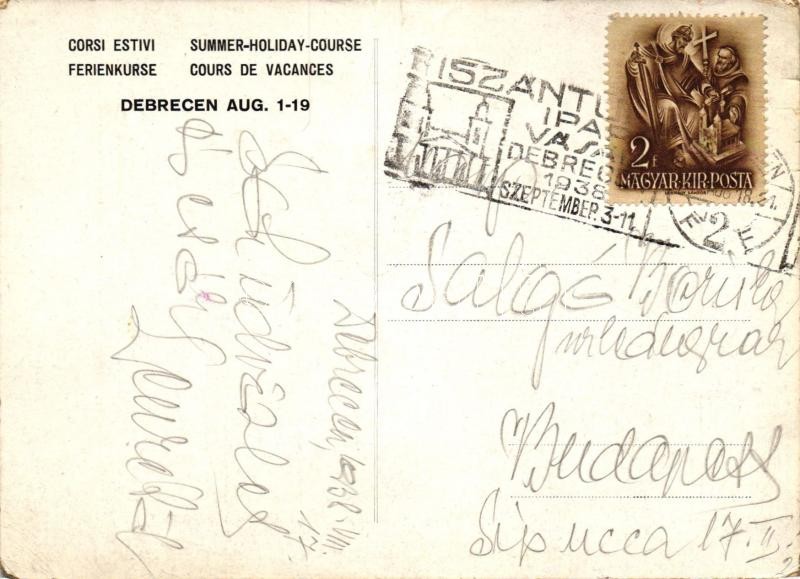 CORSI ESTIVI SUMMER-HOLIDAY-COURSE
FERIENKURSE COURS DE VACANCES
DEBRECEN AUG. 1-19
TISZÁNTÚ
IPA
VÁSÁ
DEBREC
1938
SZEPTEMBER 3-11
2f
MAGYAR·KIR·POSTA
Salgó Boriska
urleánynak
Budapest
Síp ucca 17. II.
Debrecen, 1938. VIII.
17.
üdvözlet